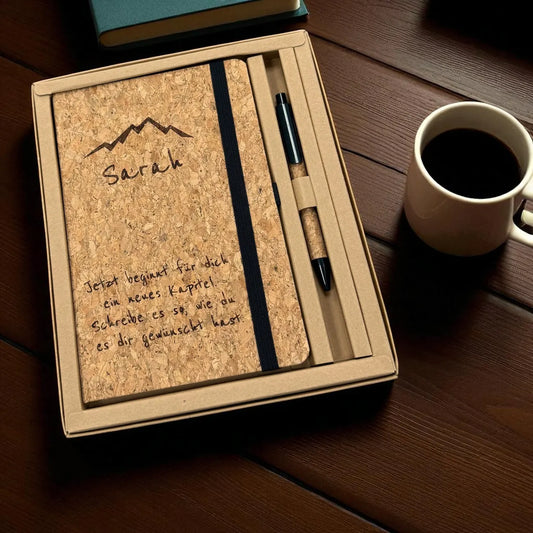 Sarah
Jetzt beginnt für dich
ein neues Kapitel.
Schreibe es so, wie du
es dir gewünscht hast.